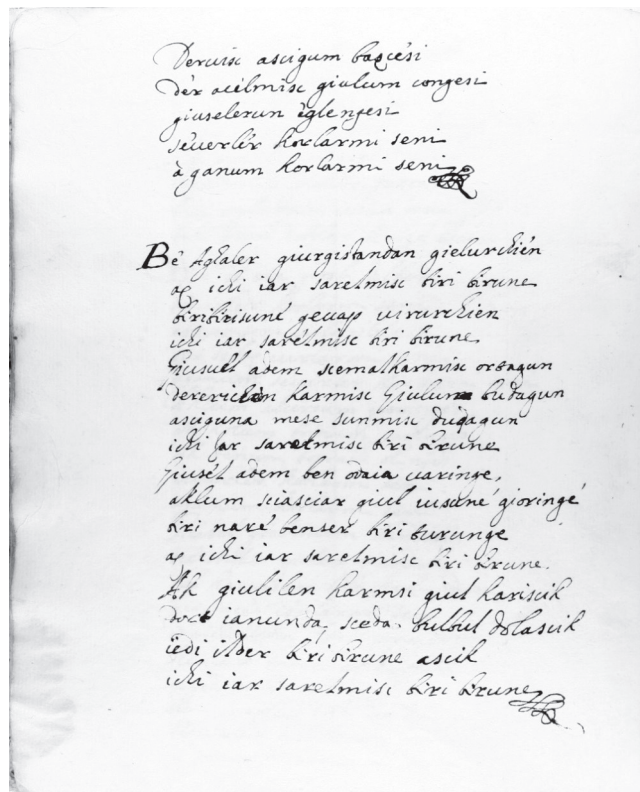 Deruisc ascigum baxcési
dér acilmisc giulum congesi
giuselerun églengesi
séuerlér horlarmi seni
à ganum horlarmi seni
Bé Aghaler giurgistandan gielurchién
ax ichi iar saretmisc biri birune
biribirisuné geuap uirurchien
ichi iar sarétmisc biri birune
Giusélt adem scemalkarmisc ortagun
dererichen karmisc Giulum budagun
asciguna mese sunmisc dudagun
ichi iar saretmisc biri birune
Giusét adem ben odaia uaringe,
aklum sciasciar giul iusuné gioringé
biri naré benser biri turunge
ax ichi iar saretmisc biri birune.
Ak giulilen karmsi giul kariscik
doct ianunda, sceda bulbul dolascik
iedi ilder biri birune ascik
ichi iar saretmisc biri birune